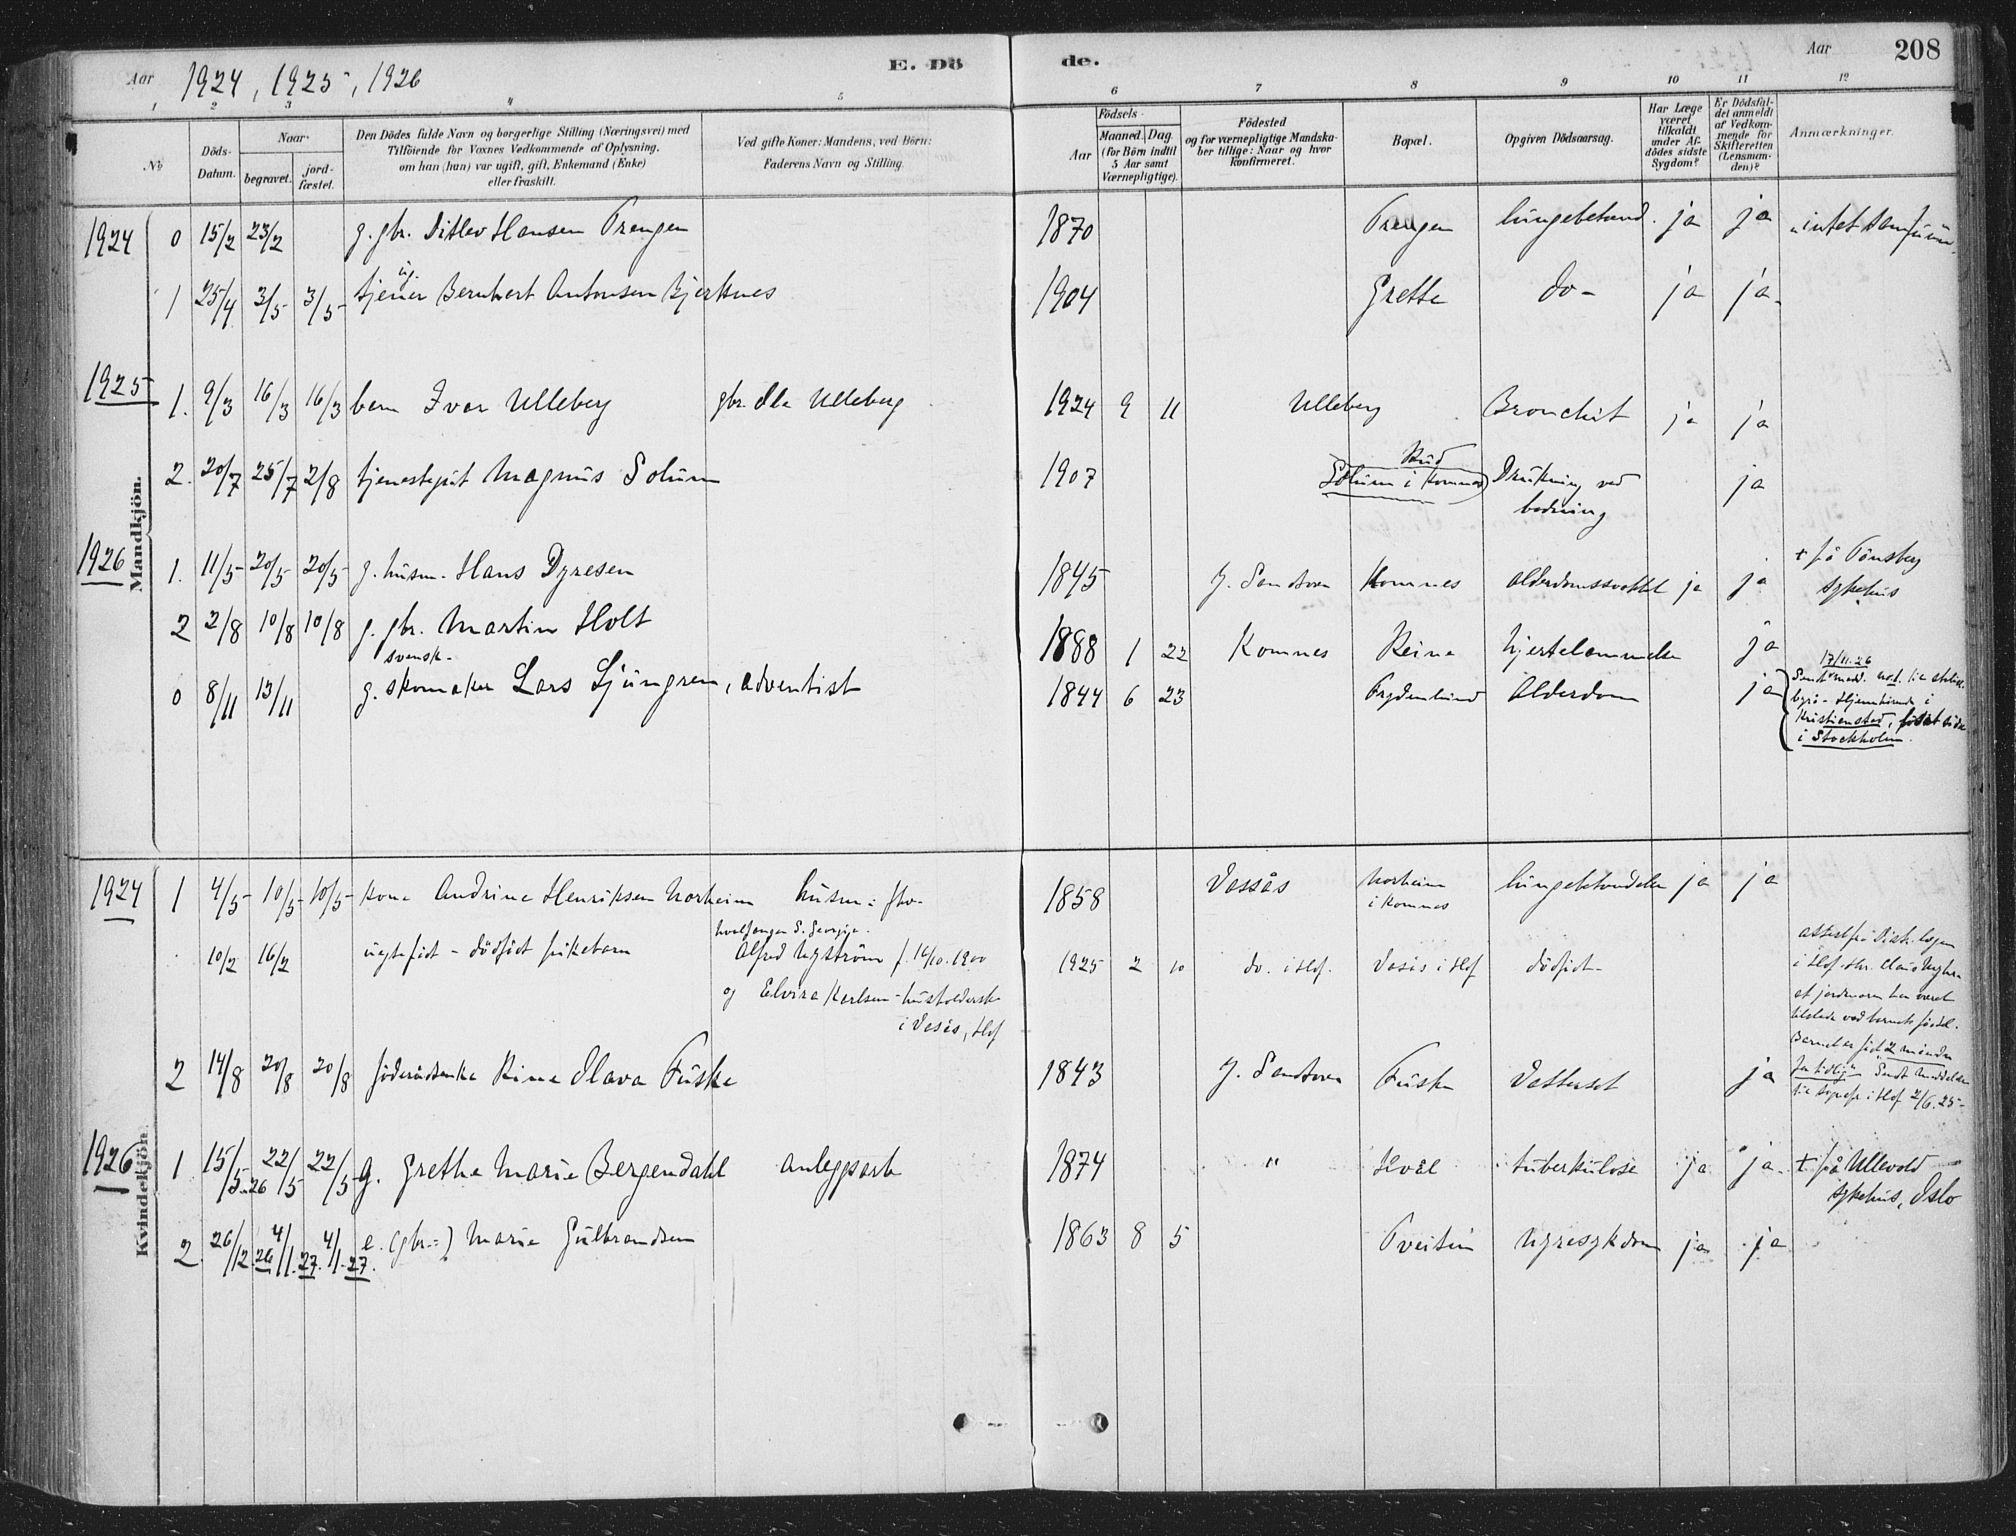 Aar 1924, 1925, 1926 E. Dö de. Aar 208
1 2 3 4 5 6 7 8 9 10 11 12
No
Döds-Datum.
Naar
begravet.
jord-fæstet.
Den Dödes fulde Navn og borgerlige Stilling (Næringsvei) med
Tilföiende for Voxnes Vedkommende af Oplysning,
om han (hun) var ugift, gift, Enkemand (Enke)
eller fraskilt.
Ved gifte Koner: Mandens, ved Börn:
Faderens Navn og Stilling.
Födsels-
Aar
Maaned. Dag.
(for Börn indtil
5 Aar samt
Værnepligtige).
Födested
og for værnepligtige Mandska-
ber tillige: Naar og hvor
konfirmeret.
Bopæl.
Opgiven Dödsaarsag.
Har Læge
været
tilkaldt
under Af-
dödes sidste
Sygdom?
Er Dödsfal-
det anmeldt
af Vedkom-
mende for
Skifteretten
(Lensman-
den)?
Anmærkninger.
Mandkjön.
1924 0 15/2 23/2 g. gbr. Ditlev Hansen Prengen 1870 Prengen lungebetænd. ja ja intet samfunn
ug.
1 25/4 3/5 3/5 tjener Bernhert Antonsen Bjerknes 1904 Grette do- ja ja
1925 1. 9/3 16/3 16/3 barn Ivar Ulleberg gbr. Ole Ulleberg 1924 9 11 Ulleberg Bronchit ja ja
2. 20/7 25/7 2/8 tjenestegut Magnus Solum 1907 Rud Solum i Komnes Drukning ved
badning ja
1926 1. 11/5 20/5 20/5 g. husm. Hans Dyresen 1845 Y. Sandsvær Komnes alderdomssvakhet ja ja + på Tönsberg
sykehus
2 2/8 10/8 10/8 g. gbr. Martin Holt 1888 1 22 Komnes Reine hjertelammelse ja
svensk
0 8/11 13/11 g. skomaker Lars Ljungren, adventist 1844 6 23 Frydenlund Alderdom ja 17/11.26
Kristiansted,
i Stockholm.
Kvindekjön.
1924 1 4/5 10/5 10/5 kone Andrine Henriksen Norheim husm. 1858 Vassås Norheim
i Komnes lungebetændelse ja ja
10/2 16/2 uegtefödt - dödfödt pikebarn hvalfanger S. Georgia.
Alfred Nyström f. 16/10.1900
og Elvira Karlsen -
i Vasås, Hof
1925 2 10 do. i Hof. Vasås i Hof dödfödt-
attest frå Distr.lægen
i Hof
at jordmoren har været
tilstede ved barnets födsel.
Barnet er födt 2 måneder
for tidlig. Sendt meddelelse
til sognepr. i Hof 2/6.25-
2 14/8 20/8 20/8 föderådsenke Rine Olava Fuske 1843 Y. Sandsvær Fuske ja
1926 1 15/5.26 22/5 22/5 g. Grethe Marie Bergendahl anleggsarb 1874 " Hvål tuberkulose ja ja + på Ullevold
sykehus, Oslo
2. 26/12.26 4/1.27. 4/1.27. e. (gbr.=) Marie Gulbrandsen 1863 8 5 Tveiten Nyresykdom ja ja